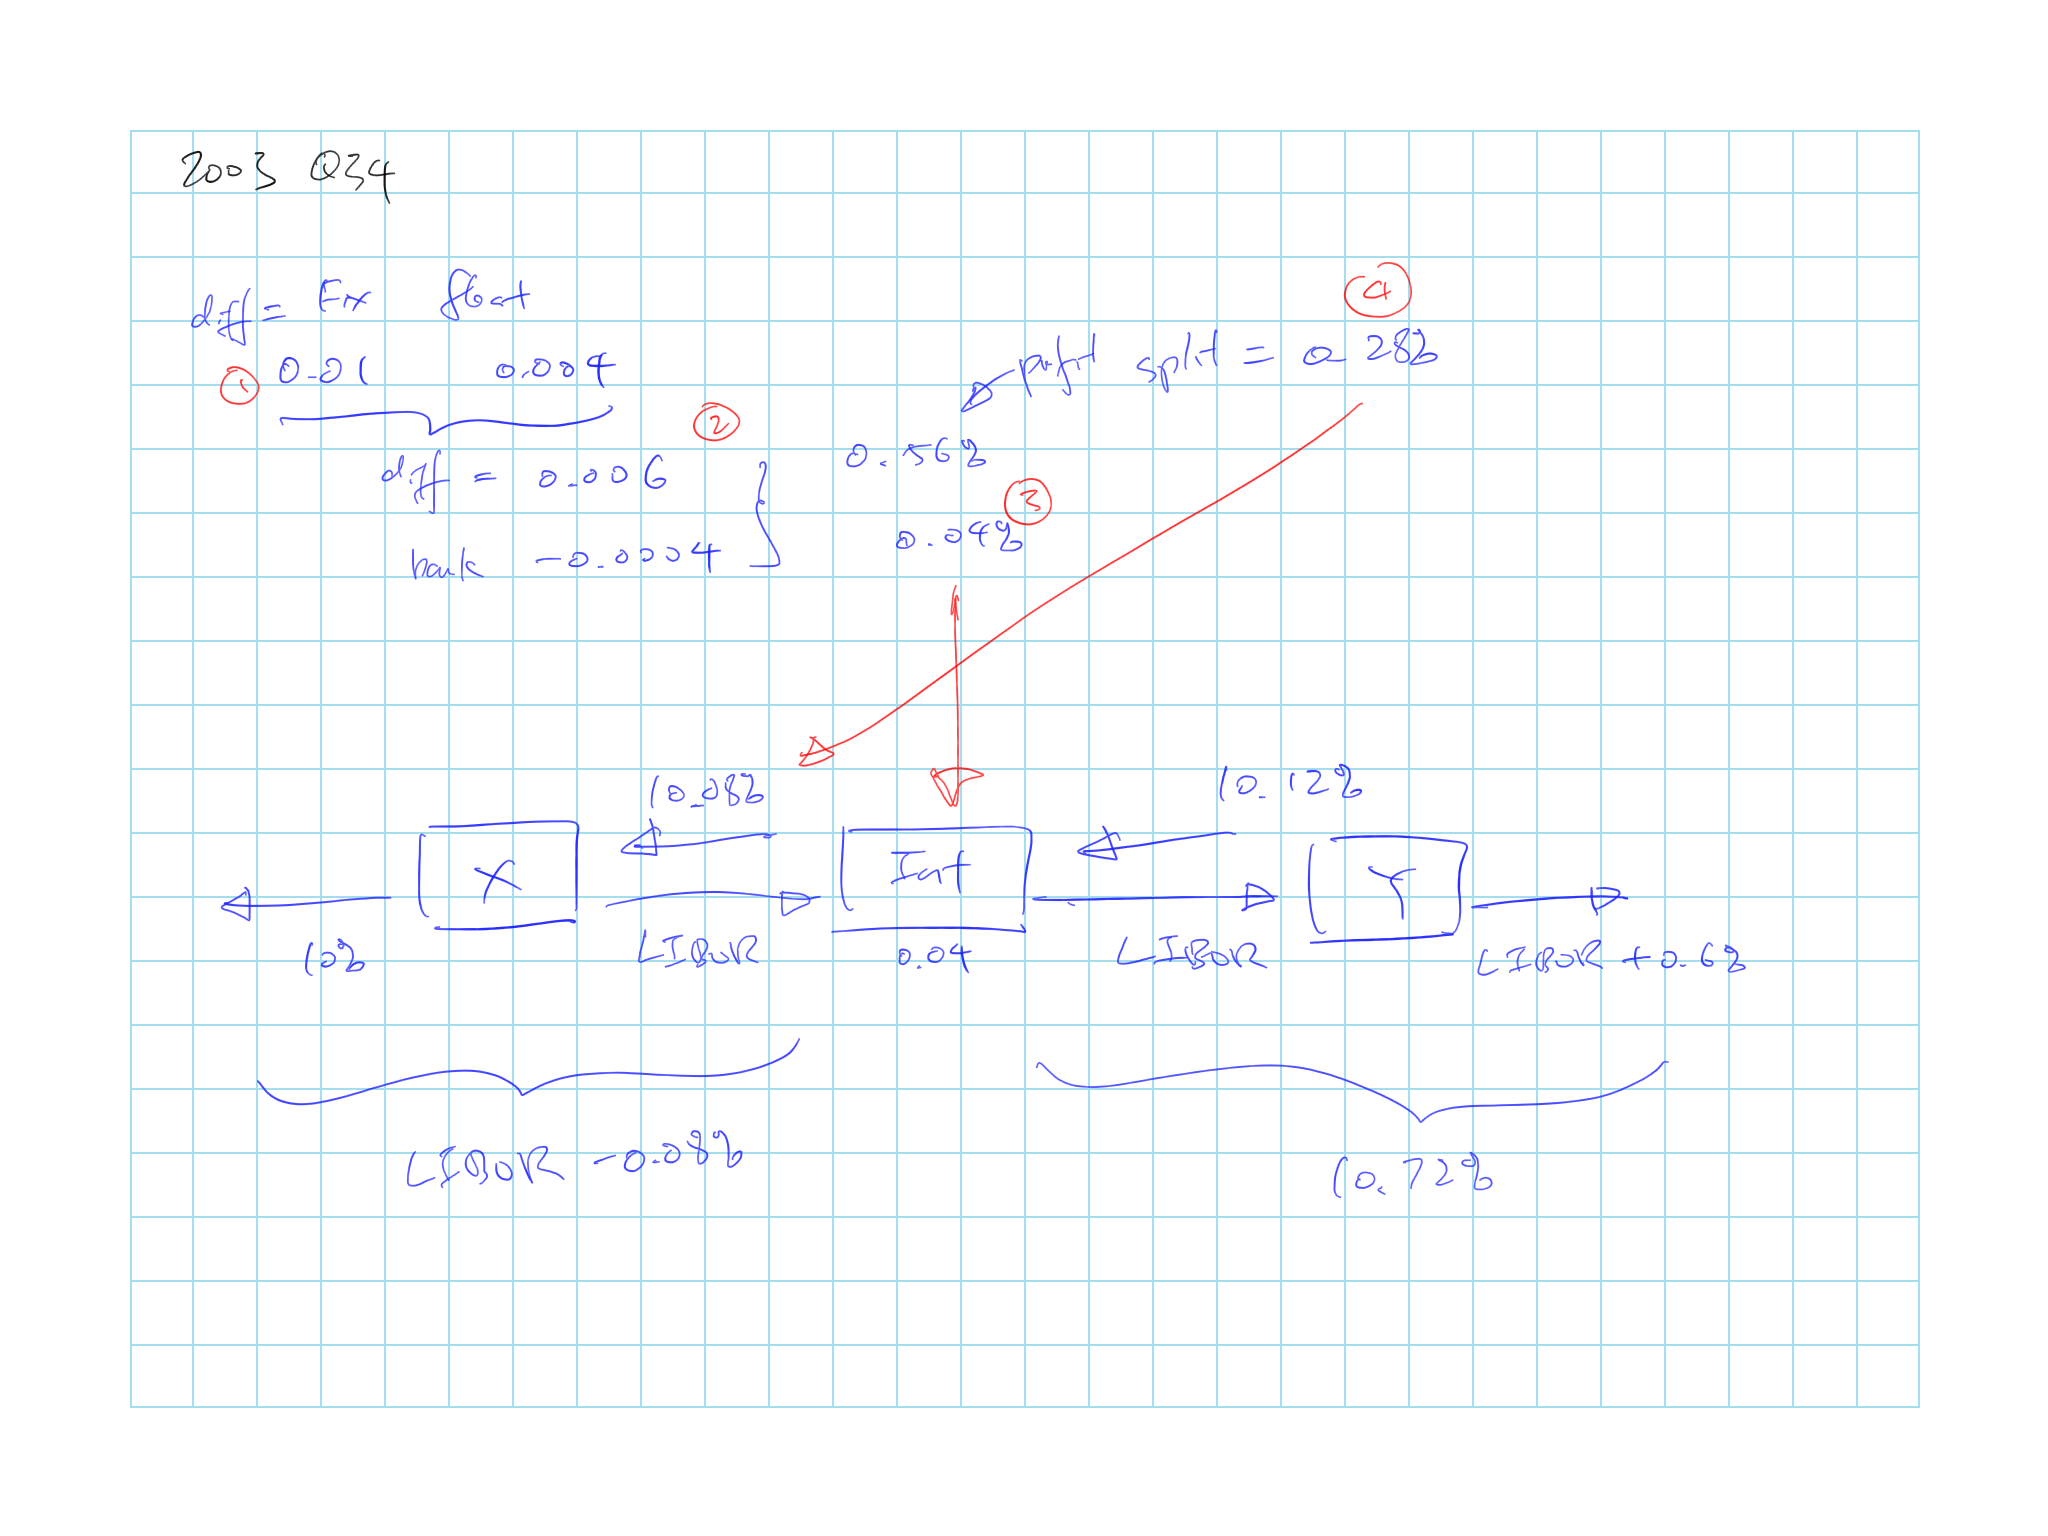 2003 Q34
diff = Fix float
① 0.01 0.004
diff = 0.006 ②
bank -0.0004
④
profit split = 0.28%
0.56%
③
0.04%
10.08% 10.12%
X Int Y
10% LIBOR 0.04 LIBOR LIBOR + 0.6%
LIBOR -0.08% 10.72%